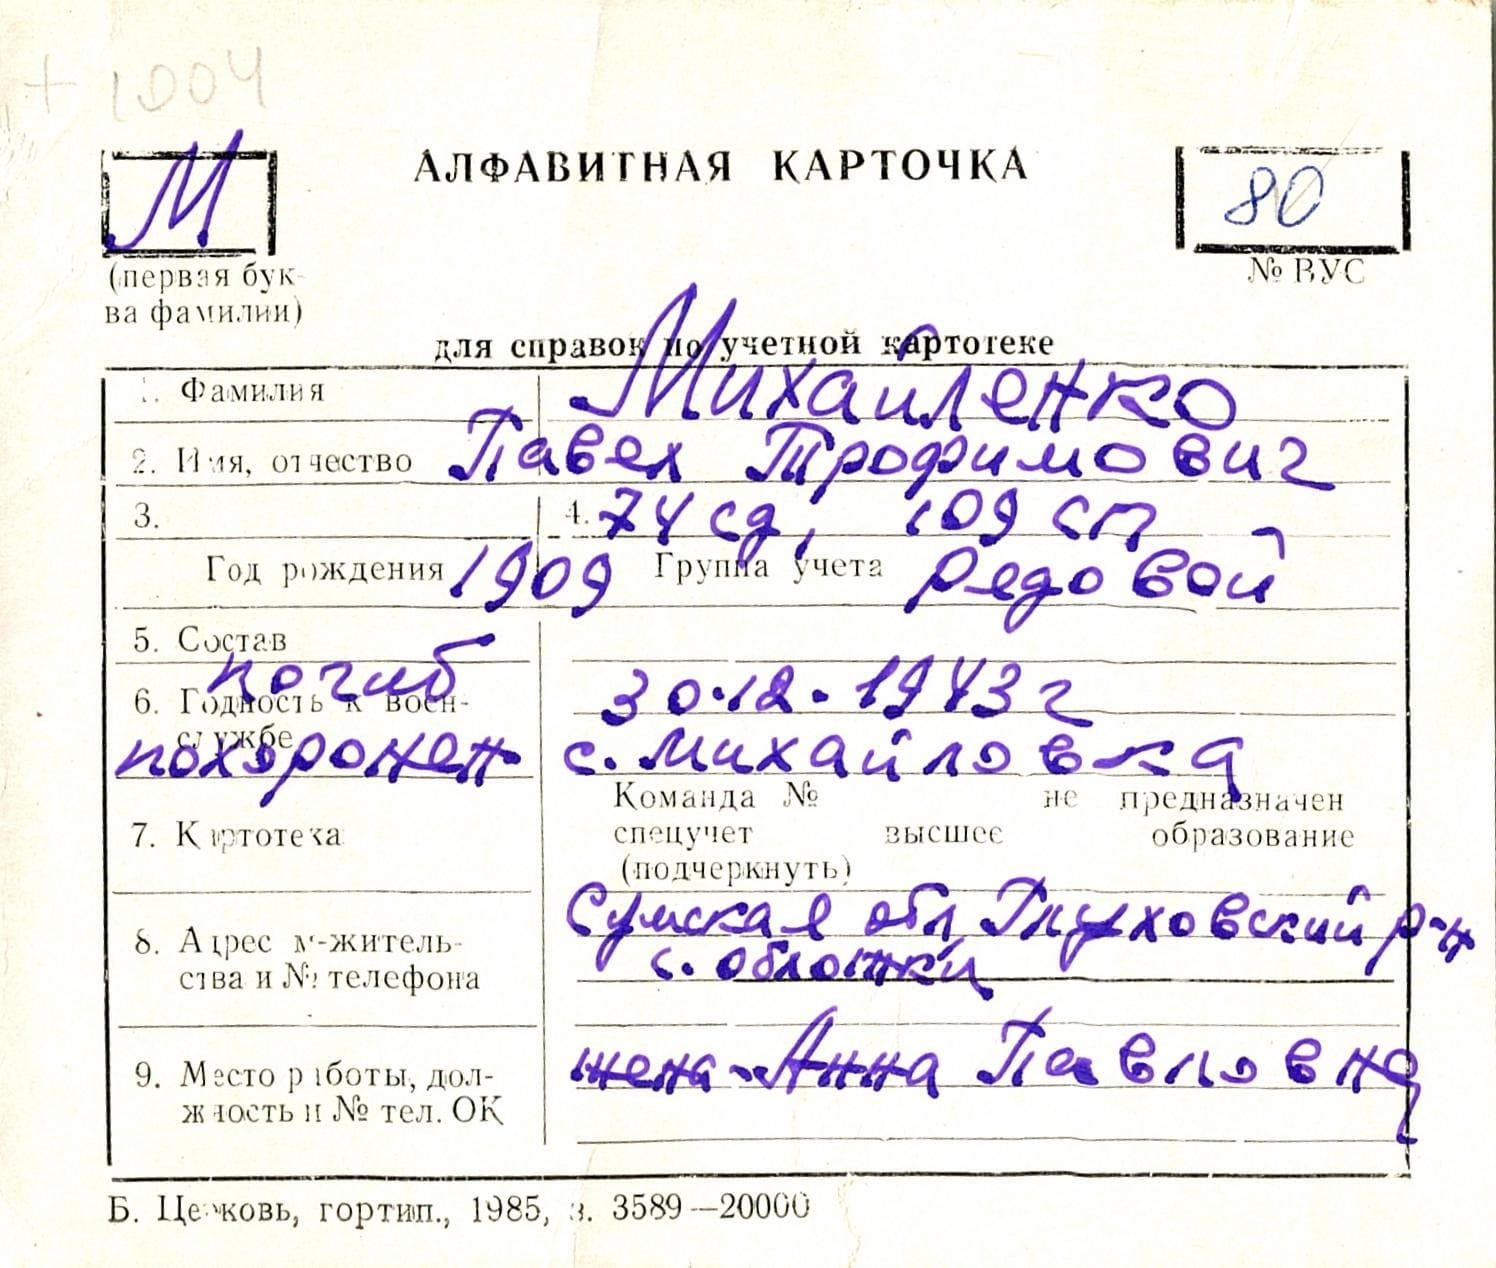 + 1004
М
АЛФАВИТНАЯ КАРТОЧКА
80
(первая бук-
ва фамилии)
№ ВУС
для справок по учетной картотеке
1. Фамилия Михайленко
2. Имя, отчество Павел Трофимович
3. 4. 74 сд, 109 сп
Год рождения 1909 Группа учета рядовой
5. Состав
погиб 30.12.1943 г
6. Годность к воен-
службе
похоронен с. Михайловка
7. Картотека
Команда № не предназначен
спецучет высшее образование
(подчеркнуть)
8. Адрес м-житель-
ства и № телефона
Сумская обл Глуховский р-н
с. Обложки
9. Место работы, дол-
жность и № тел. ОК
жена - Анна Павловна
Б. Церковь, гортип., 1985, з. 3589—20000